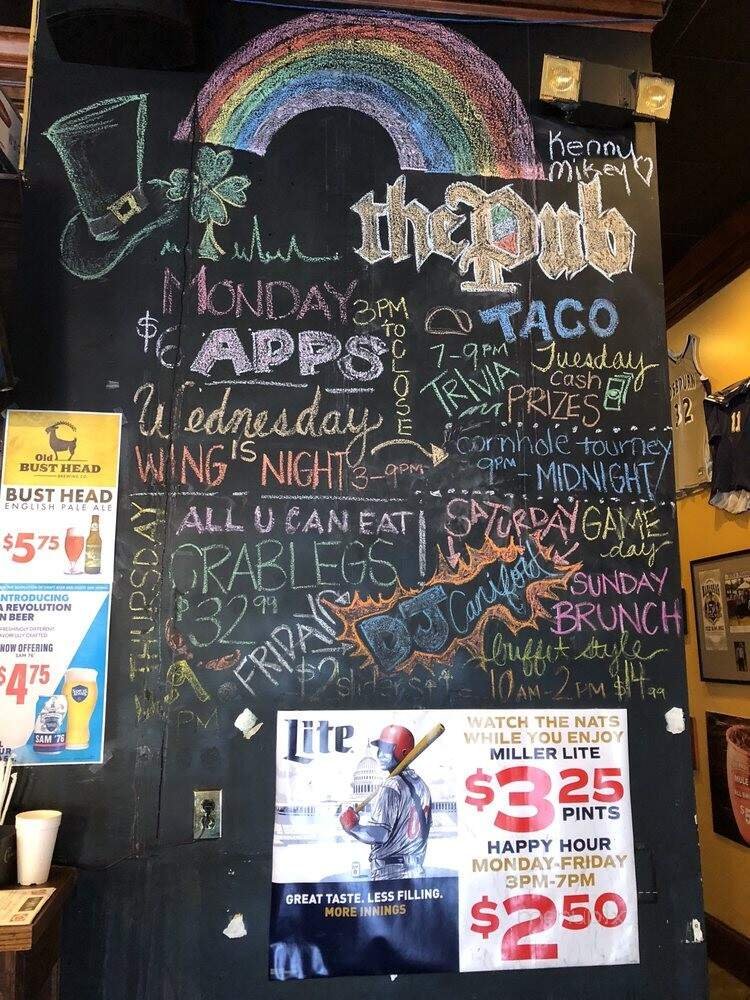 Kenny
Mikey
thePub
MONDAY
$6 APPS
3PM
TO
CLOSE
TACO
Tuesday
7-9PM
TRIVIA
Cash
PRIZES
Wednesday
IS
WING NIGHT 3-9PM
cornhole tourney
9PM - MIDNIGHT
THURSDAY
ALL U CAN EAT
CRABLEGS
$32.99
SATURDAY GAME
day
FRIDAYS
DJ
$2 sliders
SUNDAY
BRUNCH
buffet style
10AM-2PM $14.99
PM
Old
BUST HEAD
BREWING CO.
BUST HEAD
ENGLISH PALE ALE
$5.75
INTRODUCING
A REVOLUTION
IN BEER
NOW OFFERING
SAM '76
$4.75
SAM '76
Lite
GREAT TASTE. LESS FILLING.
MORE INNINGS
WATCH THE NATS
WHILE YOU ENJOY
MILLER LITE
$3.25
PINTS
HAPPY HOUR
MONDAY-FRIDAY
3PM-7PM
$2.50
32